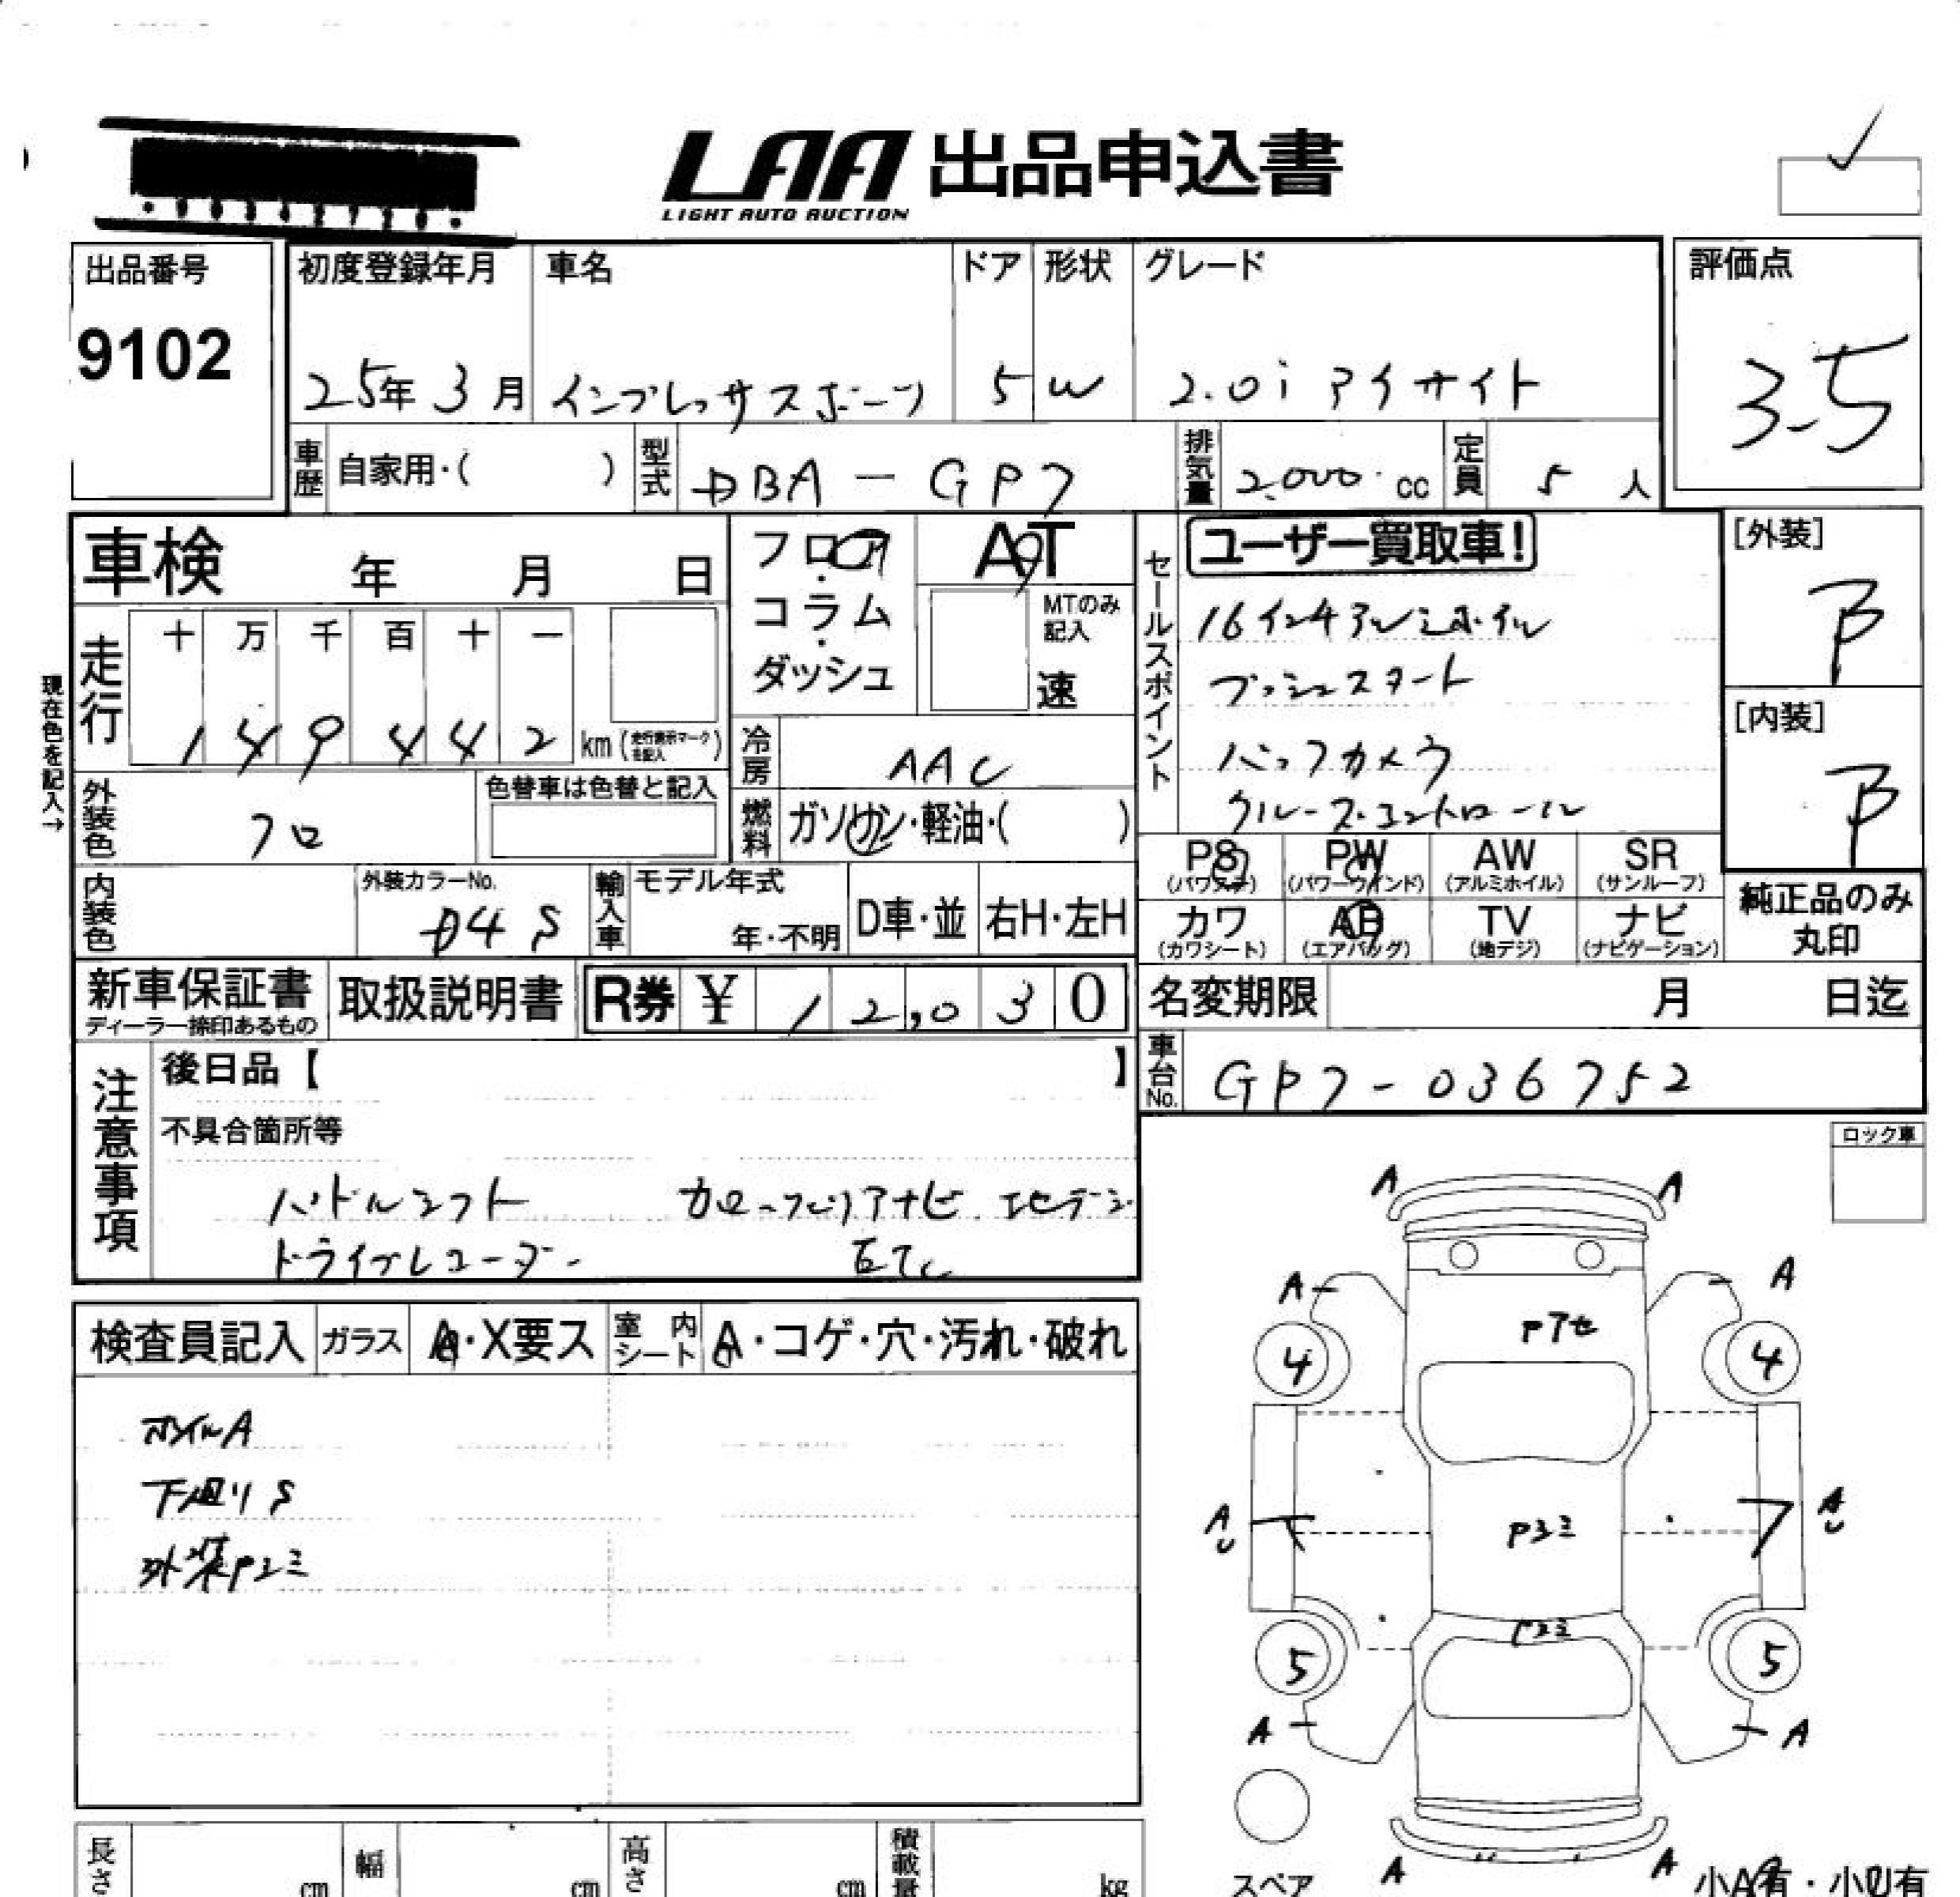 LAA 出品申込書
LIGHT AUTO AUCTION
出品番号
9102
初度登録年月
25年 3月
車名
インプレッサスポーツ
ドア
5
形状
W
グレード
2.0i アイサイト
評価点
3.5
車歴 自家用・( )
型式 DBA-GP7
排気量 2.000 cc
定員 5 人
車検 年 月 日
フロア・コラム・ダッシュ
AT
MTのみ記入
速
セールスポイント
ユーザー買取車!
16インチアルミホイル
プッシュスタート
バックカメラ
クルーズ.コントロール
[外装]
B
[内装]
B
現在色を記入→
走行
十 万 千 百 十 一
1 4 9 4 4 2 km (走行表示マークを記入)
冷房 AAC
外装色 クロ
色替車は色替と記入
燃料 ガソリン・軽油・( )
PS (パワステ)
PW (パワーウインド)
AW (アルミホイル)
SR (サンルーフ)
内装色
外装カラーNo.
D4S
輸入車
モデル年式
年・不明
D車・並
右H・左H
カワ (カワシート)
AB (エアバッグ)
TV (地デジ)
ナビ (ナビゲーション)
純正品のみ丸印
新車保証書
ディーラー捺印あるもの
取扱説明書
R券 ¥ 12,030
名変期限 月 日迄
車台No. GP7-036752
注意事項
後日品【 】
不具合箇所等
パドルシフト
ドライブレコーダー
ETC
ロック車
検査員記入
ガラス A・X要ス
室内シート A・コゲ・穴・汚れ・破れ
ホイルA
下廻りS
外装Pコミ
A A
A A
Pアセ
4 4
A U
Pコミ
A U
Pコミ
5 5
A A
スペア
A A
小A有・小U有
長さ cm
幅 cm
高さ cm
積載量 kg